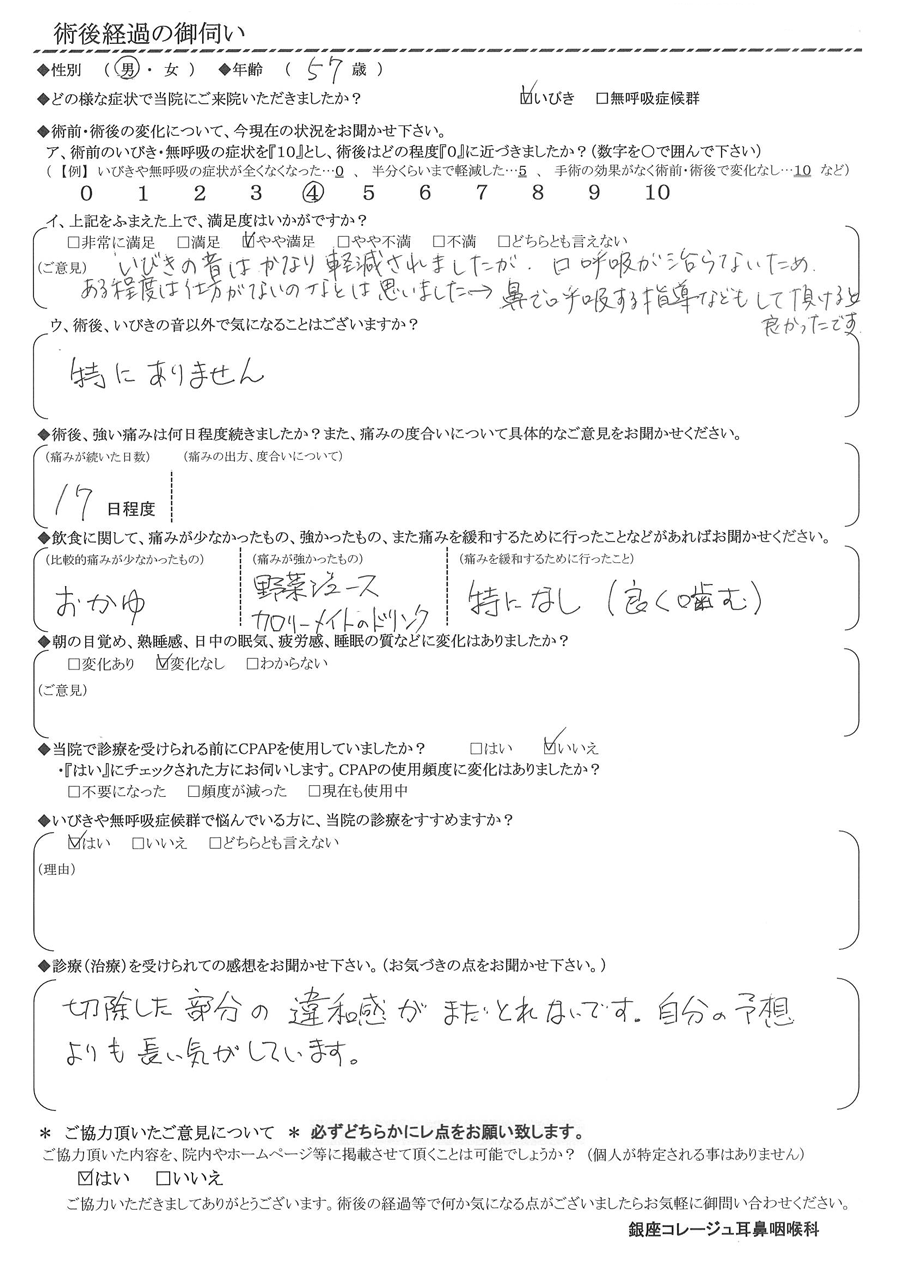 術後経過の御伺い
◆性別 （ 男 ・ 女 ） ◆年齢 （ 57 歳 ）
◆どの様な症状で当院にご来院いただきましたか？ ☑いびき □無呼吸症候群
◆術前・術後の変化について、今現在の状況をお聞かせ下さい。
ア、術前のいびき・無呼吸の症状を『10』とし、術後はどの程度『0』に近づきましたか？（数字を〇で囲んで下さい）
（ 【例】 いびきや無呼吸の症状が全くなくなった…0 、 半分くらいまで軽減した…5 、 手術の効果がなく術前・術後で変化なし…10 など）
0 1 2 3 ④ 5 6 7 8 9 10
イ、上記をふまえた上で、満足度はいかがですか？
□非常に満足 □満足 ☑やや満足 □やや不満 □不満 □どちらとも言えない
（ご意見） いびきの音はかなり軽減されましたが、口呼吸が治らないため、
ある程度は仕方がないのかなとは思いました→鼻で呼吸する指導などもして頂けると
良かったです
ウ、術後、いびきの音以外で気になることはございますか？
特にありません
◆術後、強い痛みは何日程度続きましたか？また、痛みの度合いについて具体的なご意見をお聞かせください。
（痛みが続いた日数） （痛みの出方、度合いについて）
17 日程度
◆飲食に関して、痛みが少なかったもの、強かったもの、また痛みを緩和するために行ったことなどがあればお聞かせください。
（比較的痛みが少なかったもの） （痛みが強かったもの） （痛みを緩和するために行ったこと）
おかゆ 野菜ジュース 特になし（良く噛む）
カロリーメイトのドリンク
◆朝の目覚め、熟睡感、日中の眠気、疲労感、睡眠の質などに変化はありましたか？
□変化あり ☑変化なし □わからない
（ご意見）
◆当院で診療を受けられる前にCPAPを使用していましたか？ □はい ☑いいえ
・『はい』にチェックされた方にお伺いします。CPAPの使用頻度に変化はありましたか？
□不要になった □頻度が減った □現在も使用中
◆いびきや無呼吸症候群で悩んでいる方に、当院の診療をすすめますか？
☑はい □いいえ □どちらとも言えない
（理由）
◆診療（治療）を受けられての感想をお聞かせ下さい。（お気づきの点をお聞かせ下さい。）
切除した部分の違和感がまだとれないです。自分の予想
よりも長い気がしています。
＊ ご協力頂いたご意見について ＊ 必ずどちらかにレ点をお願い致します。
ご協力頂いた内容を、院内やホームページ等に掲載させて頂くことは可能でしょうか？ （個人が特定される事はありません）
☑はい □いいえ
ご協力いただきましてありがとうございます。術後の経過等で何か気になる点がございましたらお気軽に御問い合わせください。
銀座コレージュ耳鼻咽喉科